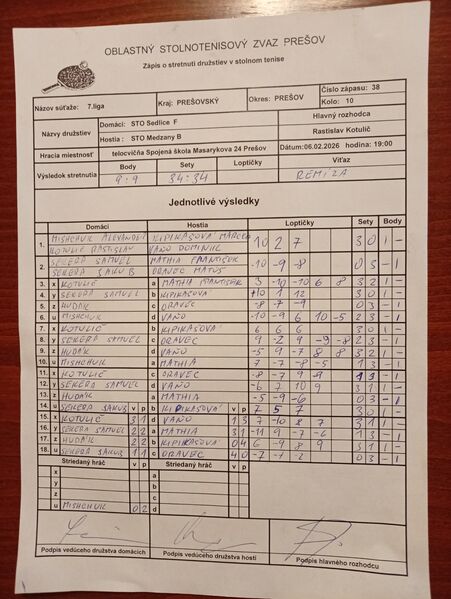 OBLASTNÝ STOLNOTENISOVÝ ZVAZ PREŠOV
Zápis o stretnutí družstiev v stolnom tenise
Názov súťaže: 7.liga Kraj: PREŠOVSKÝ Okres: PREŠOV Číslo zápasu: 38
Kolo: 10
Názvy družstiev Domáci: STO Sedlice F Hlavný rozhodca
Hostia : STO Medzany B Rastislav Kotulič
Hracia miestnosť telocvičňa Spojená škola Masarykova 24 Prešov Dátum:06.02.2026 hodina: 19:00
Výsledok stretnutia Body Sety Loptičky Víťaz
9:9 34:34 REMÍZA
Jednotlivé výsledky
Domáci Hostia Loptičky Sety Body
1. MISHCHUK ALEXANDER KIPIKAŠOVÁ MARCELA 10 2 7 3 0 1 -
KOTULIČ RASTISLAV VAŇO DOMINIK
2. SEKERA SAMUEL MATHIA FRANTIŠEK -10 -9 -8 0 3 - 1
SEKERA JAKUB ORAVEC MATÚŠ
3. x KOTULIČ a MATHIA FRANTIŠEK 3 -10 -10 6 8 3 2 1 -
4. y SEKERA SAMUEL b KIPIKAŠOVÁ 10 1 12 3 0 1 -
5. z HUDÁK c ORAVEC -8 -7 -9 0 3 - 1
6. u MISHCHUK d VAŇO -10 -9 6 10 -5 2 3 - 1
7. x KOTULIČ b KIPIKAŠOVÁ 6 6 6 3 0 1 -
8. y SEKERA SAMUEL c ORAVEC 9 -2 9 -9 -8 2 3 - 1
9. z HUDÁK d VAŇO -5 9 -7 8 8 3 2 1 -
10. u MISHCHUK a MATHIA -7 -7 8 -5 1 3 - 1
11. x KOTULIČ c ORAVEC -8 -7 9 -9 1 3 - 1
12. y SEKERA SAMUEL d VAŇO -6 7 10 9 3 1 1 -
13. z HUDÁK a MATHIA -5 -9 -6 0 3 - 1
14. u SEKERA JAKUB v p b KIPIKAŠOVÁ v p 7 5 7 3 0 1 -
15. x KOTULIČ 3 1 d VAŇO 1 3 7 -10 8 7 3 1 1 -
16. y SEKERA SAMUEL 2 2 a MATHIA 3 1 -11 9 -7 -6 1 3 - 1
17. z HUDÁK 2 2 b KIPIKAŠOVÁ 0 4 6 -9 8 9 3 1 1 -
18. u SEKERA JAKUB 1 1 c ORAVEC 4 0 -7 -1 -2 0 3 - 1
Striedaný hráč v p Striedaný hráč v p
x a
y b
z c
u MISHCHUK 0 2 d
Podpis vedúceho družstva domácich Podpis vedúceho družstva hostí Podpis hlavného rozhodcu